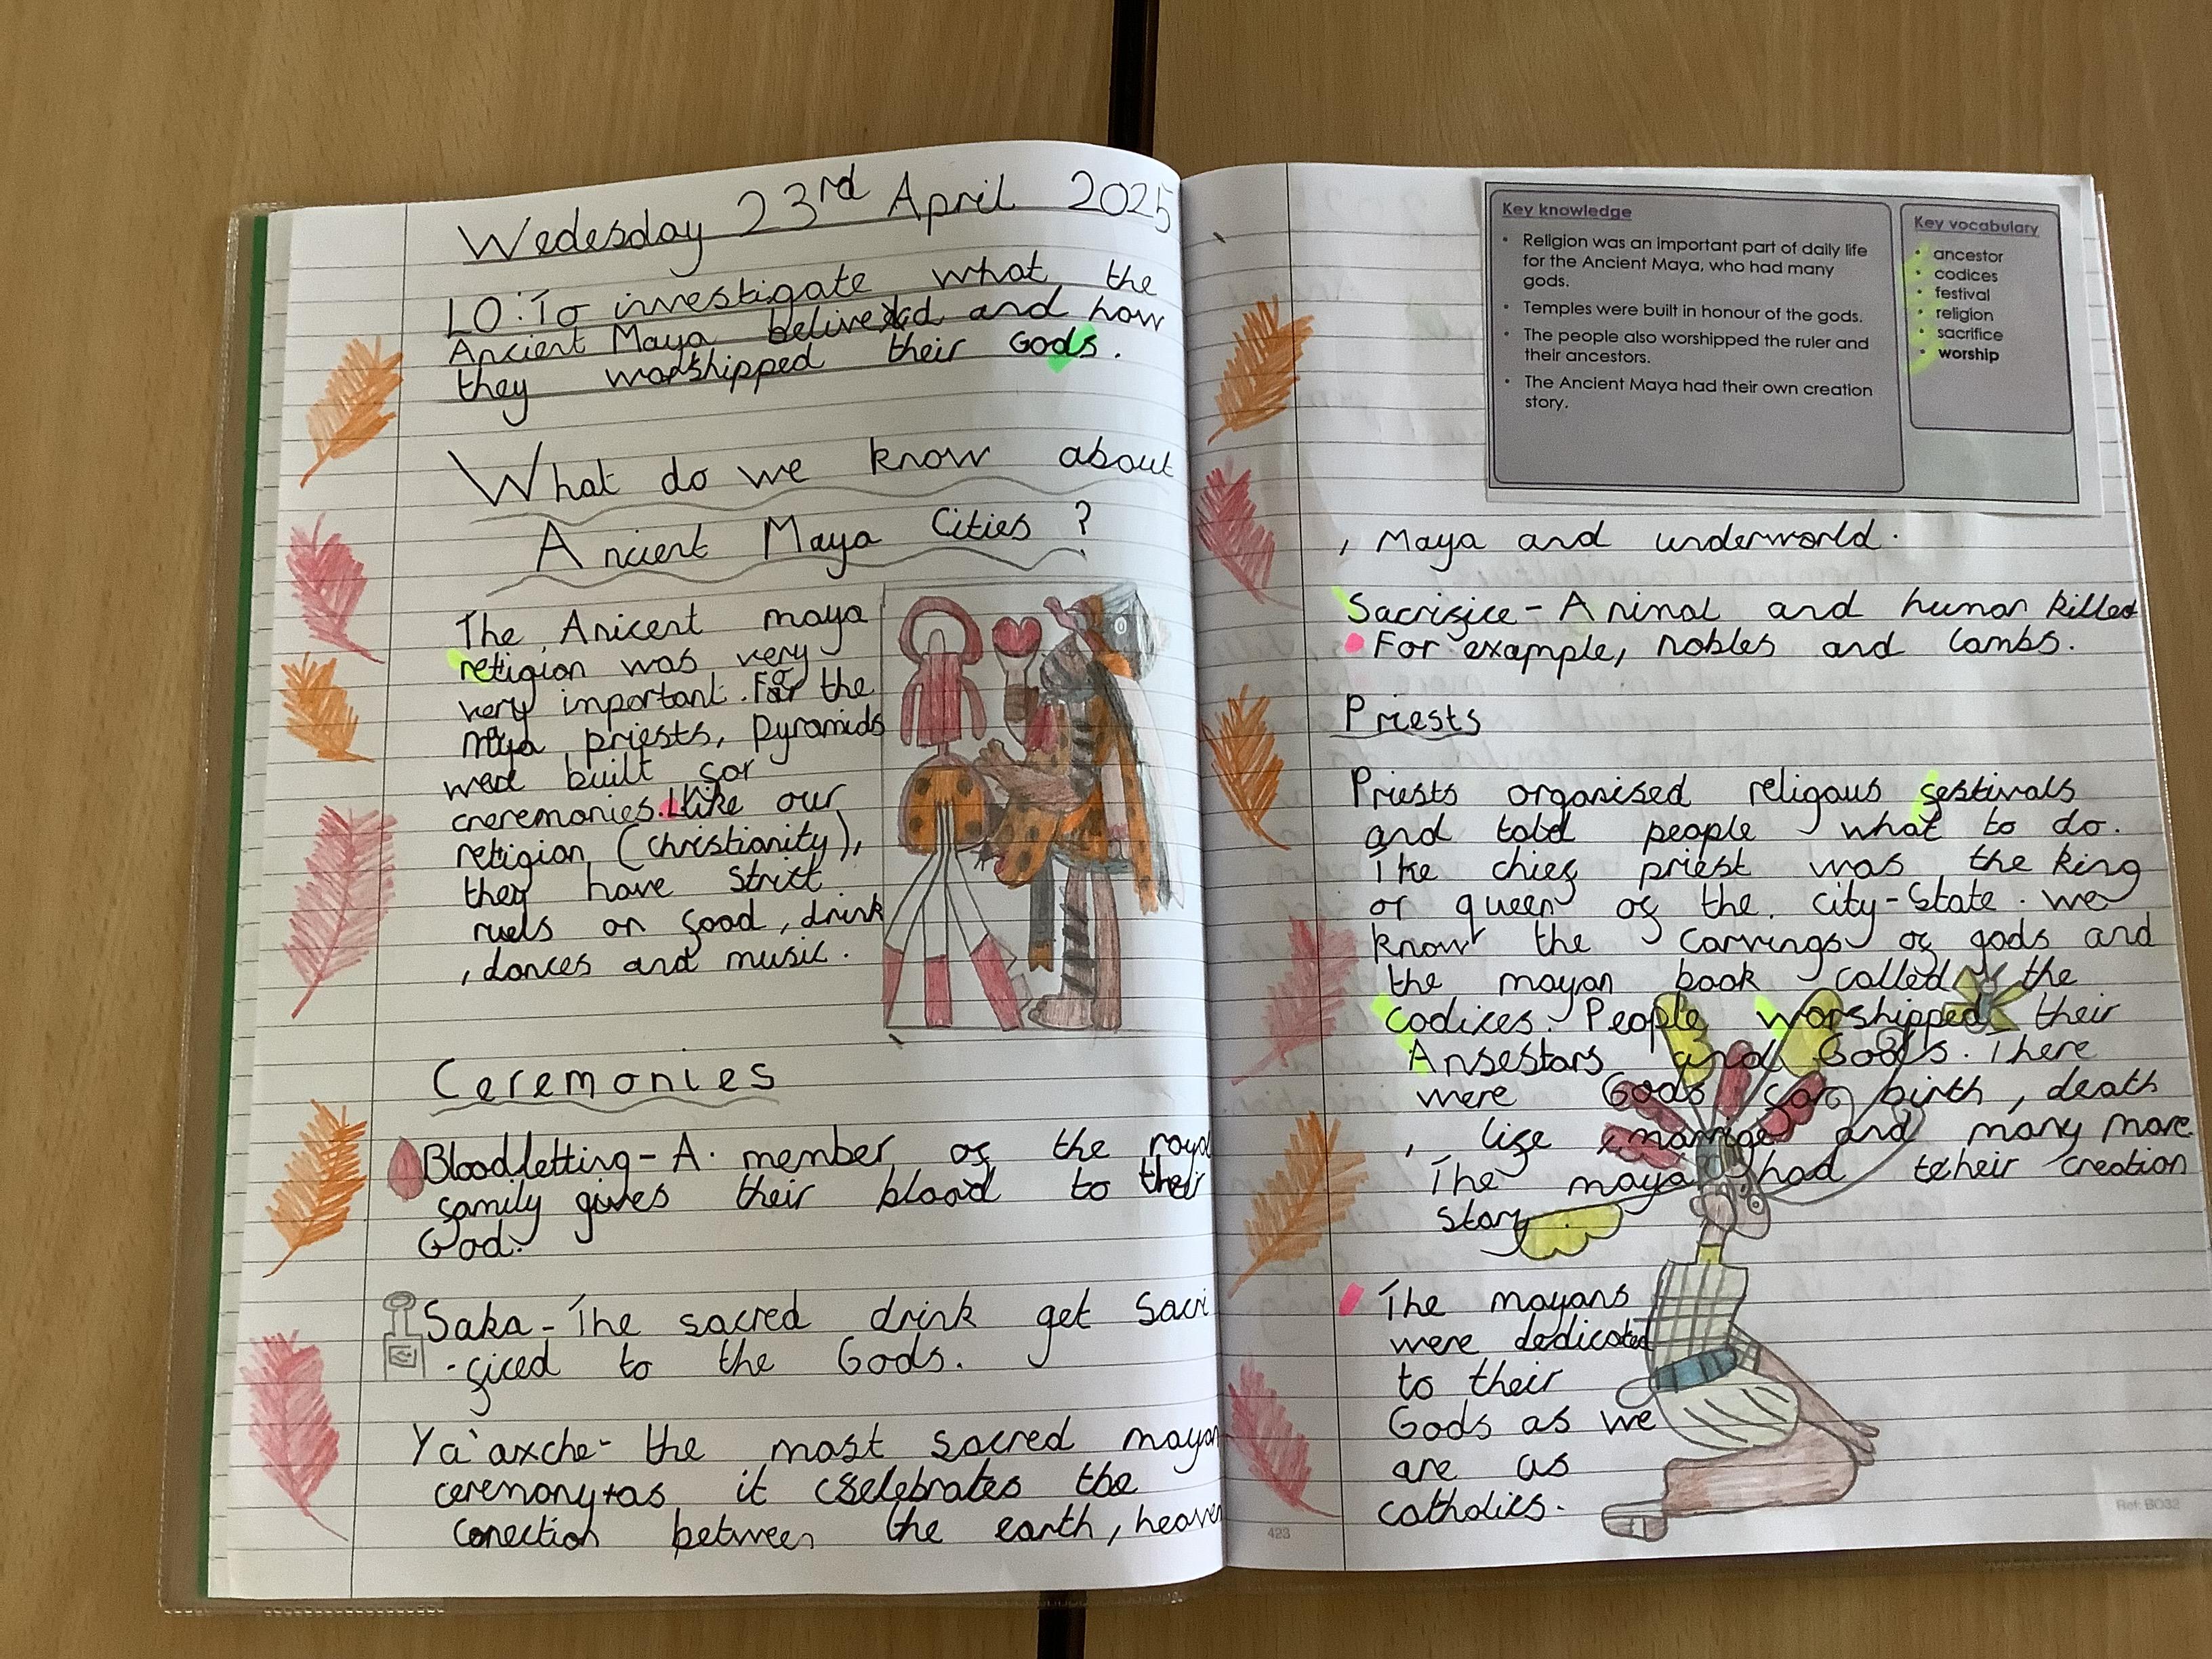 Wedesday 23rd April 2025
LO: To investigate what the
Ancient Maya belived and how
they worshipped their Gods.
What do we know about
Ancient Maya Cities?
The Anicent maya
religion was very
very important. For the
Maya priests, pyramids
were built for
creremonies. Like our
religion (christianity),
they have strict
ruels on food, drink
, dances and music.
Ceremonies
Bloodletting - A member of the royal
family gives their blood to their
God.
Saka - The sacred drink get Sacri
-ficed to the Gods.
Ya'axche - the most sacred mayan
ceremony as it celebrates the
conection between the earth, heaven
Key knowledge
• Religion was an important part of daily life
for the Ancient Maya, who had many
gods.
• Temples were built in honour of the gods.
• The people also worshipped the ruler and
their ancestors.
• The Ancient Maya had their own creation
story.
Key vocabulary
• ancestor
• codices
• festival
• religion
• sacrifice
• worship
, Maya and underworld.
Sacrifice - Animal and human killed
For example, nobles and lambs.
Priests
Priests organised religous festivals
and told people what to do.
The chief priest was the king
or queen of the city-State. we
know the carvings of gods and
the mayan book called the
codices. People worshipped their
Ansestors and Gods. There
were Gods for birth, death
, life, marrige and many more.
The maya had their creation
story.
The mayans
were dedicated
to their
Gods as we
are as
catholics.
423
Ref: BO32